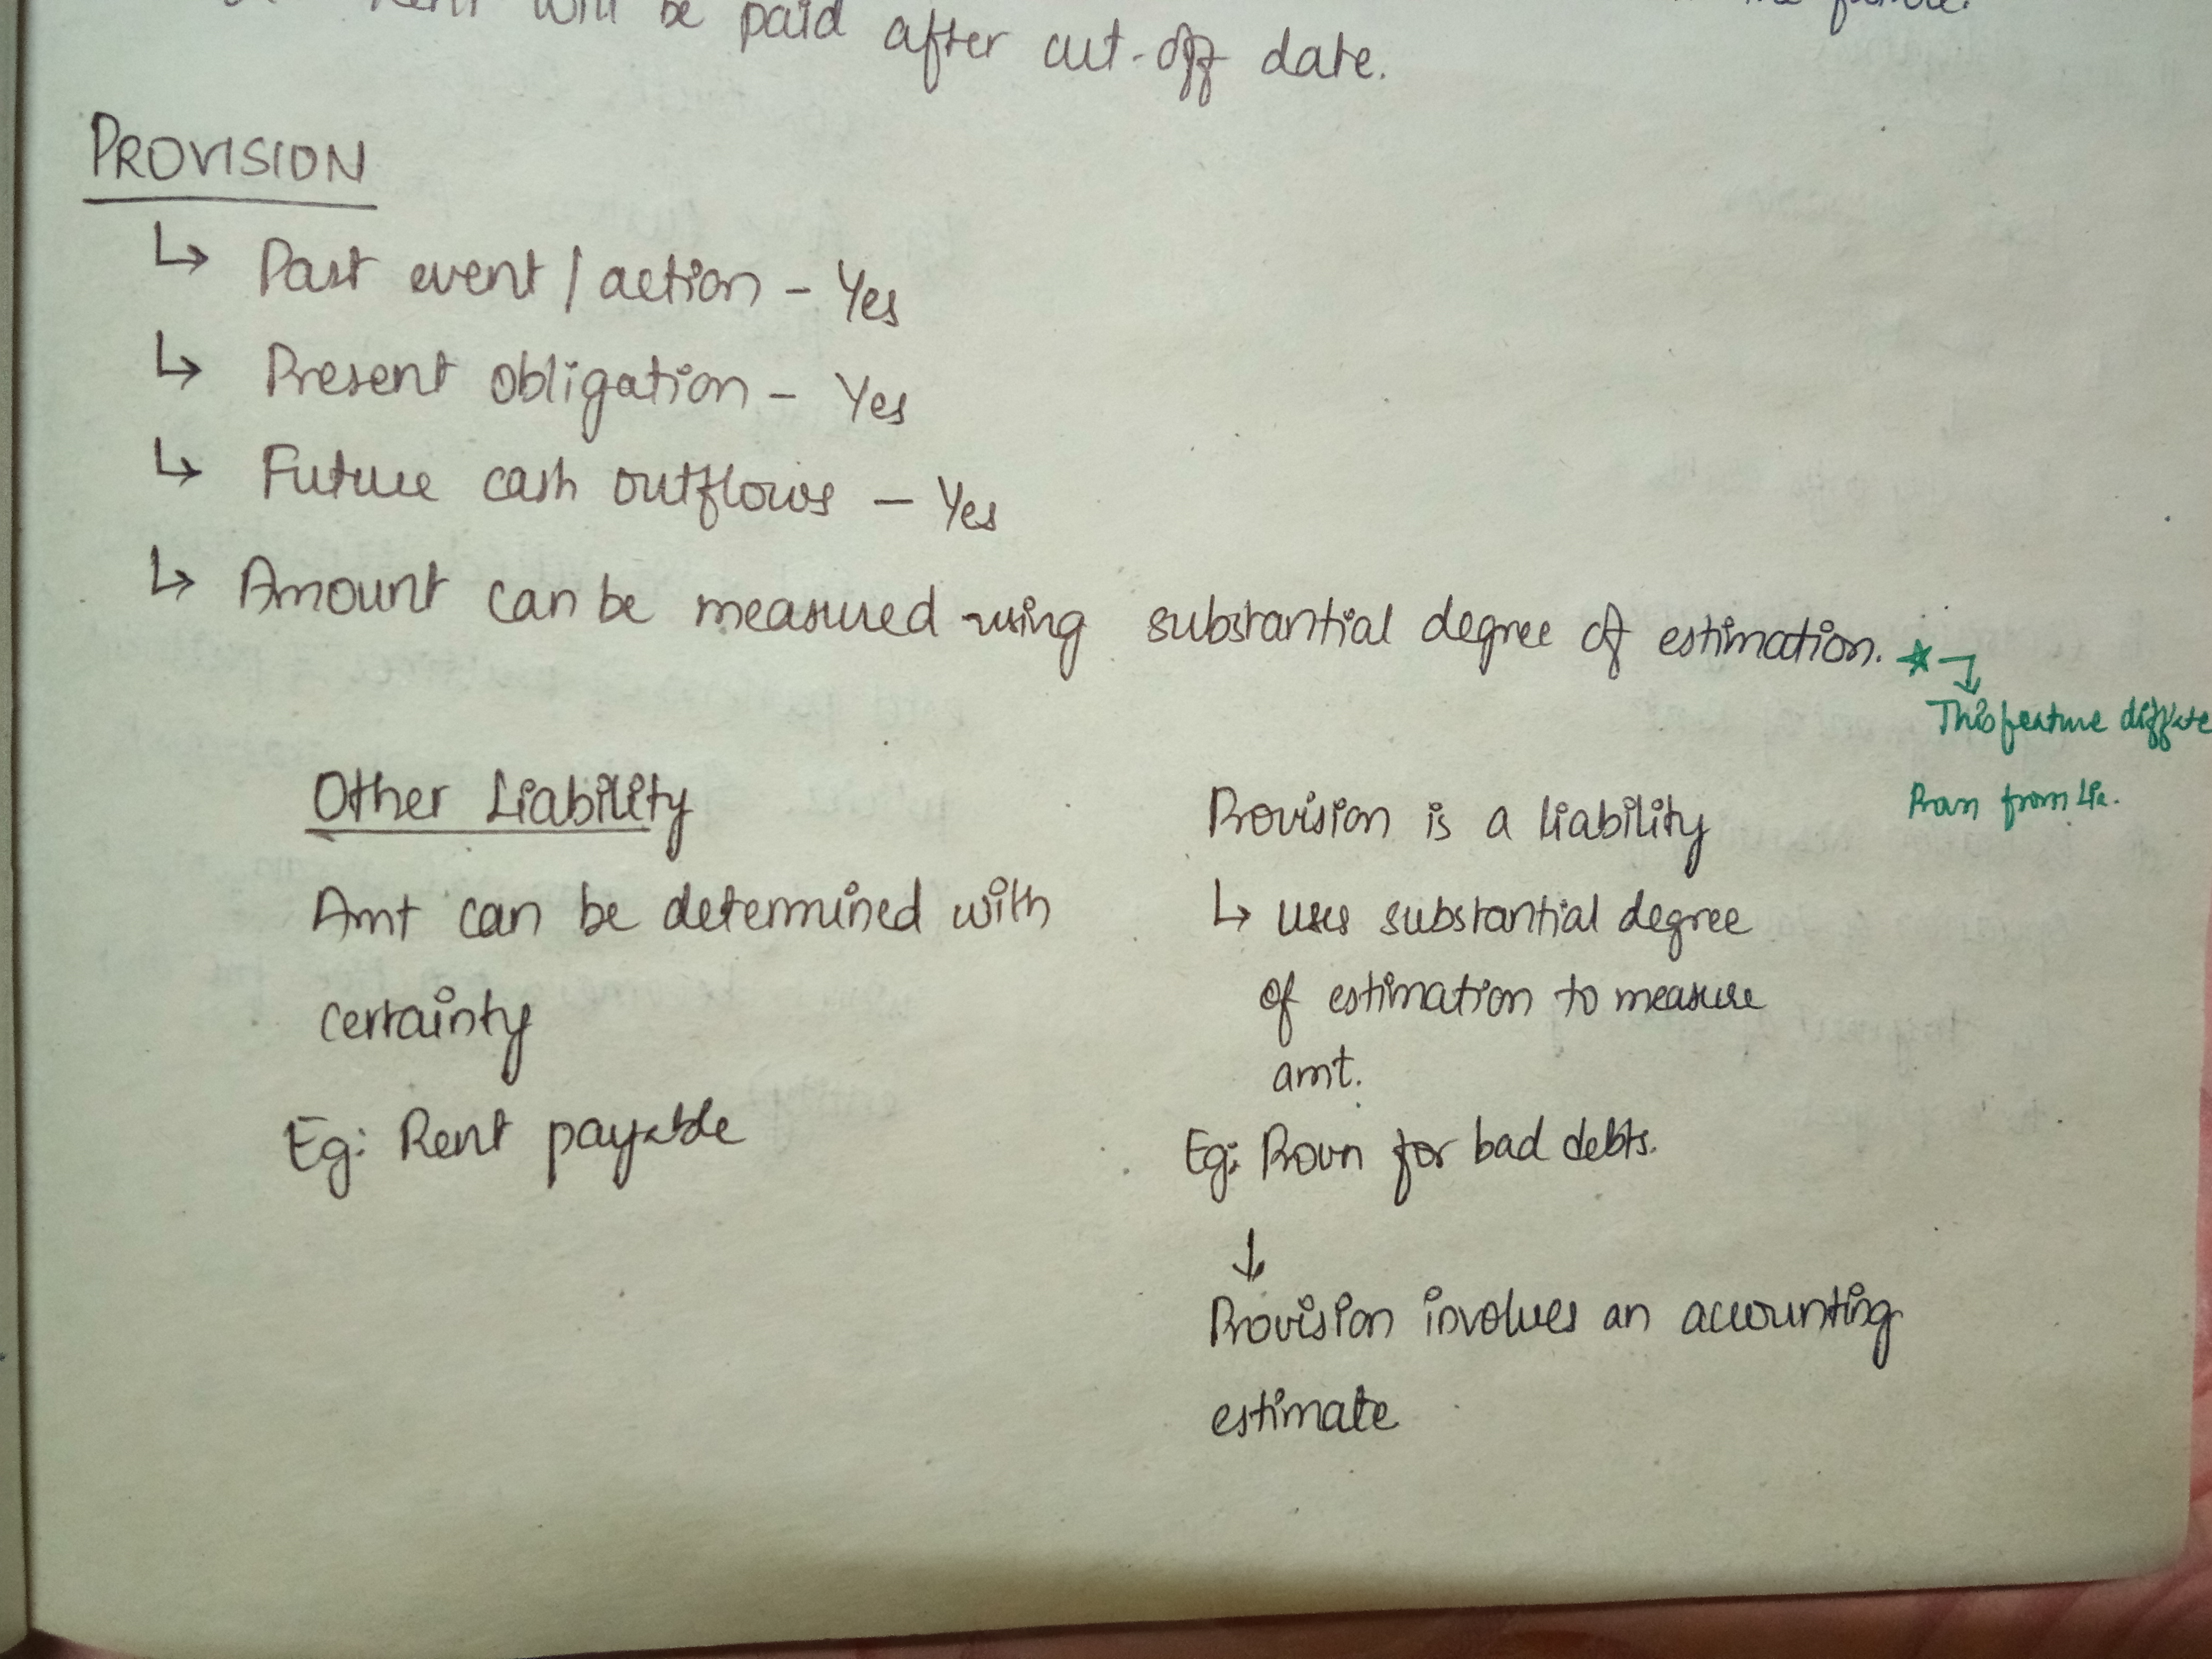 Rent will be paid after cut-off date.
the future.
PROVISION
↳ Past event / action - Yes
↳ Present obligation - Yes
↳ Future cash outflows - Yes
↳ Amount can be measured using substantial degree of estimation. ★
This feature
from Lia.
Other Liability
Amt can be determined with
certainty
Eg: Rent payable
Provision is a liability
↳ uses substantial degree
of estimation to measure
amt.
Eg: Provn for bad debts.
↓
Provision involves an accounting
estimate